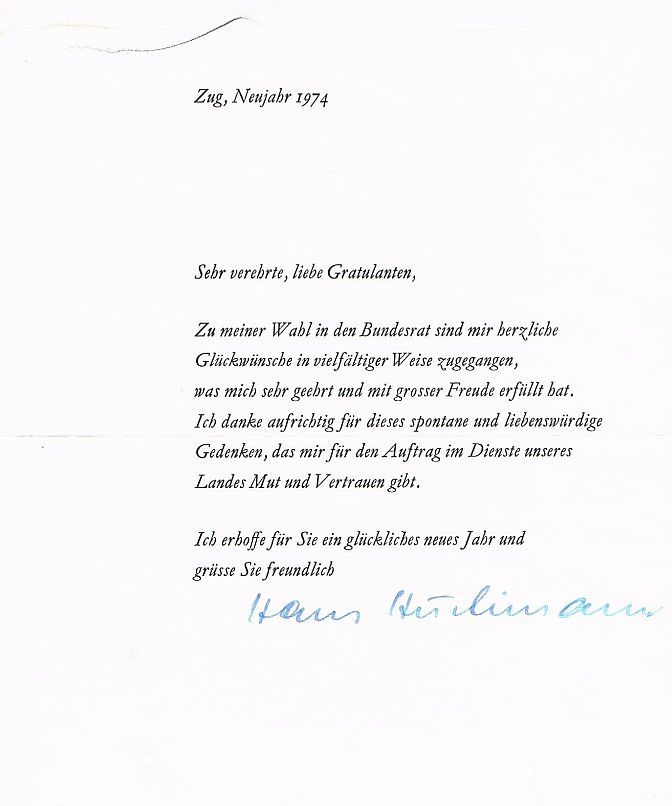 Zug, Neujahr 1974
Sehr verehrte, liebe Gratulanten,
Zu meiner Wahl in den Bundesrat sind mir herzliche
Glückwünsche in vielfältiger Weise zugegangen,
was mich sehr geehrt und mit grosser Freude erfüllt hat.
Ich danke aufrichtig für dieses spontane und liebenswürdige
Gedenken, das mir für den Auftrag im Dienste unseres
Landes Mut und Vertrauen gibt.
Ich erhoffe für Sie ein glückliches neues Jahr und
grüsse Sie freundlich
Hans Hürlimann